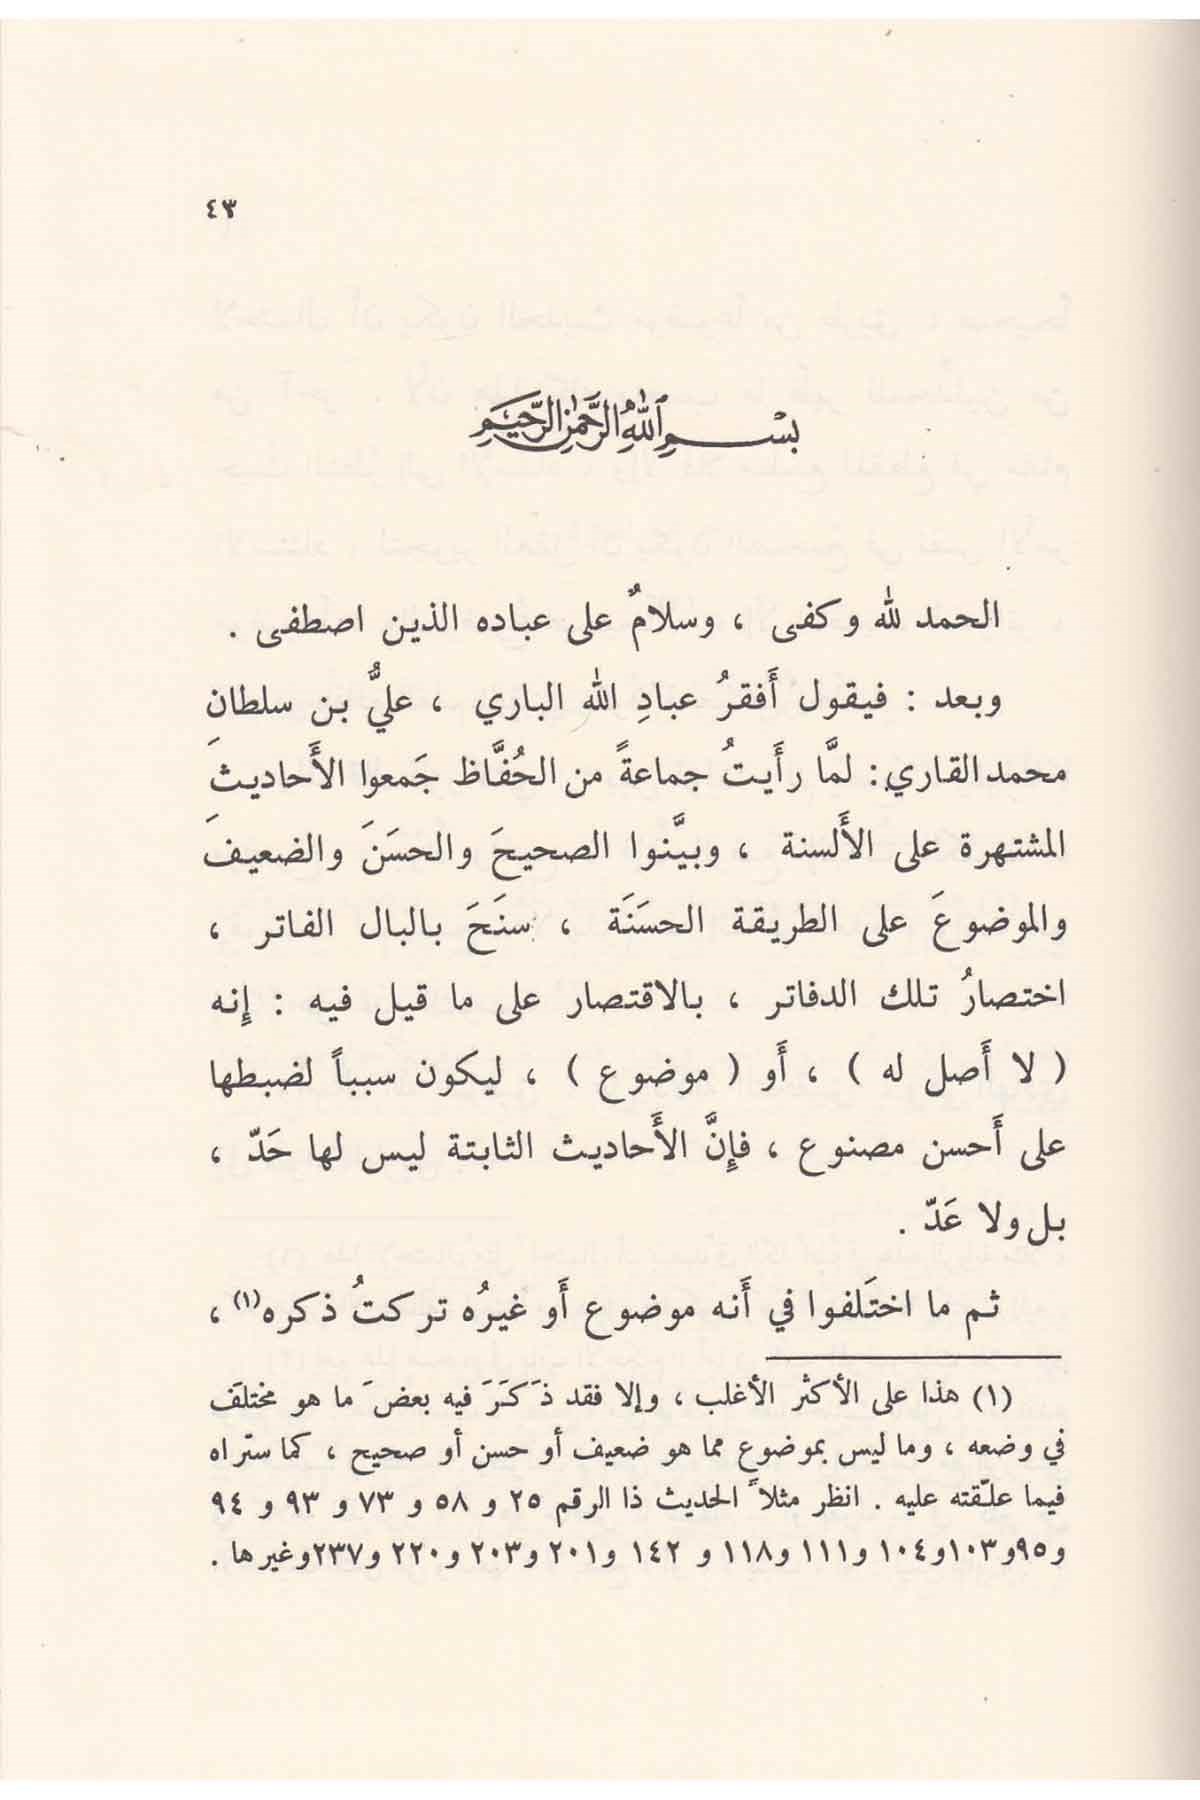 ٤٣
بسم الله الرحمن الرحيم
الحمد لله وكفى ، وسلامٌ على عباده الذين اصطفى .
وبعد : فيقول أَفقرُ عبادِ الله الباري ، عليُّ بن سلطانِ
محمد القاري: لمَّا رأَيتُ جماعةً من الحُفَّاظ جَمعوا الأَحاديثَ
المشتهرة على الأَلسنة ، وبيَّنوا الصحيحَ والحسَنَ والضعيفَ
والموضوعَ على الطريقة الحسَنَة ، سنَحَ بالبال الفاتر ،
اختصارُ تلك الدفاتر ، بالاقتصار على ما قيل فيه : إِنه
( لا أَصل له ) ، أَو ( موضوع ) ، ليكون سبباً لضبطها
على أَحسن مصنوع ، فإِنَّ الأَحاديث الثابتة ليس لها حَدّ ،
بل ولا عَدّ .
ثم ما اختَلفوا في أَنه موضوع أَو غيرُه تركتُ ذكره(١) ،
(١) هذا على الأكثر الأغلب ، وإلا فقد ذَكَرَ فيه بعضَ ما هو مختلَف
في وضعه ، وما ليس بموضوع مما هو ضعيف أو حسن أو صحيح ، كما ستراه
فيما علّقته عليه . انظر مثلاً الحديث ذا الرقم ٢٥ و ٥٨ و ٧٣ و ٩٣ و ٩٤
و٩٥و١٠٣و١٠٤ و١١١ و١١٨ و ١٤٢ و٢٠١ و٢٠٣ و٢٢٠ و٢٣٧وغيرها .